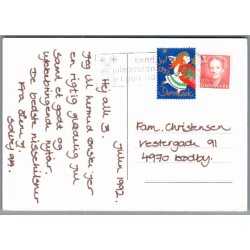 send
julepost
i god
Jul 1992
Danmark
Danmark
Julen 1992.
Hej alle 3.
Jeg vil hermed ønske jer
en rigtig glædelig jul
samt et godt og
lykkebringende nytår.
De bedste nissehilsner
Fra
Rødby
Fam. Christensen
Vestergade 91
4970 Rødby.